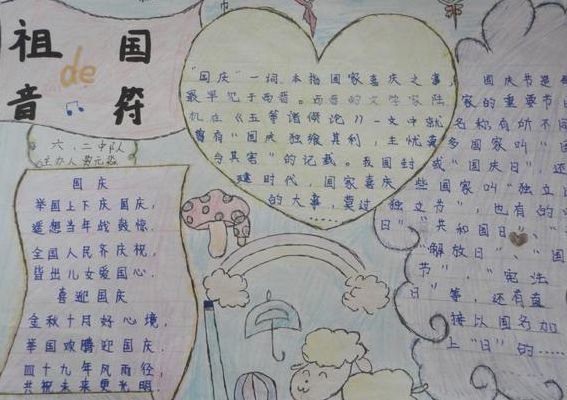 祖国
de
音符
六、二中队
主办人
国庆
举国上下庆国庆,
遥想当年战鼓惊.
全国人民齐庆祝,
皆出儿女爱国心.
喜迎国庆
金秋十月好心境,
举国欢腾迎国庆.
四十九年风雨轻,
共祝未来更光明.
"国庆"一词,本指国家喜庆之事
最早见于西晋。西晋的文学家陆
机在《五等诸侯论》一文中就
曾有"国庆独飨其利,主忧莫
与其害"的记载。我国封
建时代,国家喜庆
的大事,莫过
......
国庆节是
家的重要节日
名称有所不同
多国家叫"国
或"国庆日",还
些国家叫"独立
独立节",也有的
日"、"共和国日"、
"解放日"、"国
节"、"宪法
日"等,还有直
接以国名加
上"日"的......